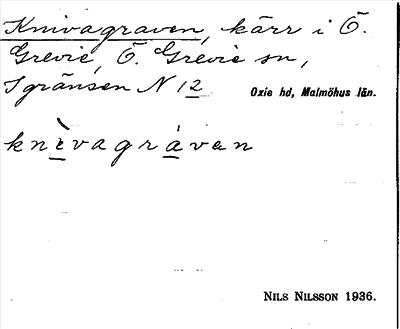 Knivagraven, kärr i Ö.
Grevie, Ö. Grevie sn,
I gränsen N 12
Oxie hd, Malmöhus län.
knìvagráven
NILS NILSSON 1936.